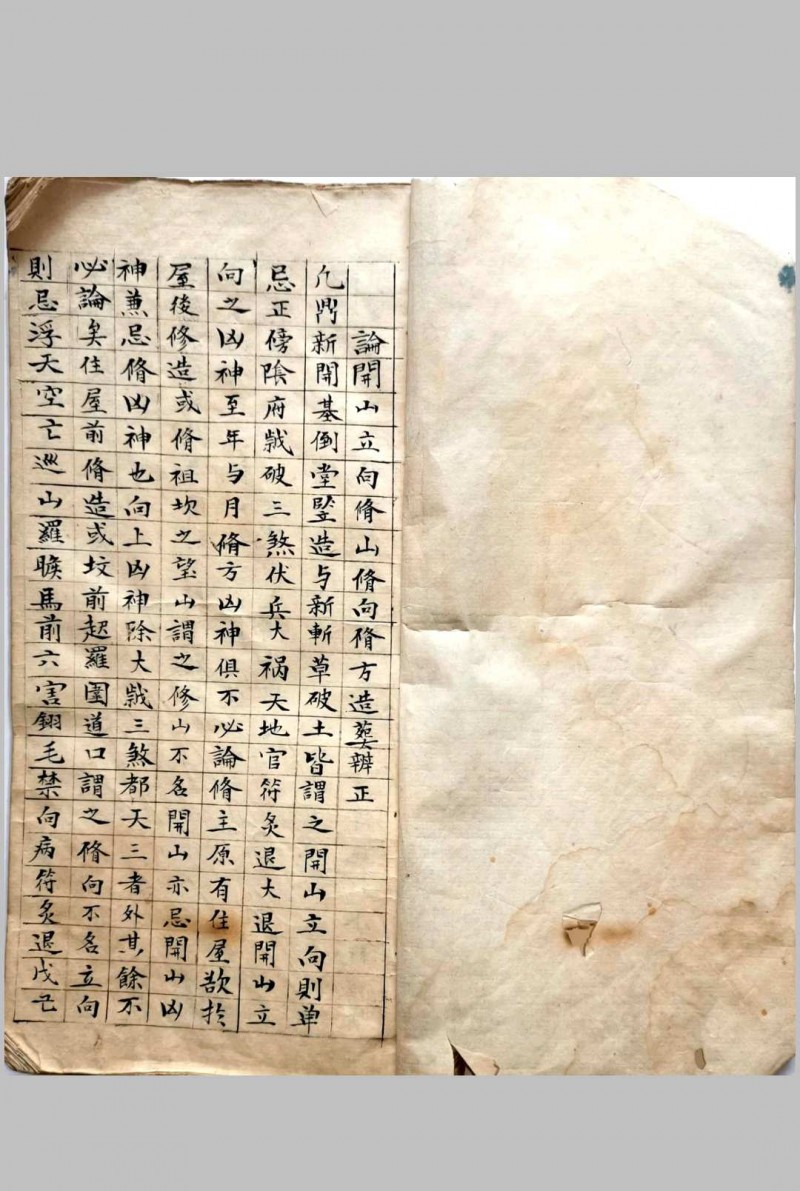 論開山立向脩山脩向脩方造葬辨正
凢鼎新開基倒堂竪造与新斬草破土皆謂之開山立向則单
忌正傍陰府戠破三煞伏兵大祸天地官符炙退大退開山立
向之凶神至年与月脩方凶神俱不必論脩主原有住屋欲扵
屋後修造或脩祖坟之望山謂之修山不名開山亦忌開山凶
神兼忌脩凶神也向上凶神除大戠三煞都天三者外其餘不
必論矣住屋前脩造或坟前超羅圍道口謂之脩向不名立向
則忌浮天空亡巡山羅睺馬前六害翎毛禁向病符炙退戊己